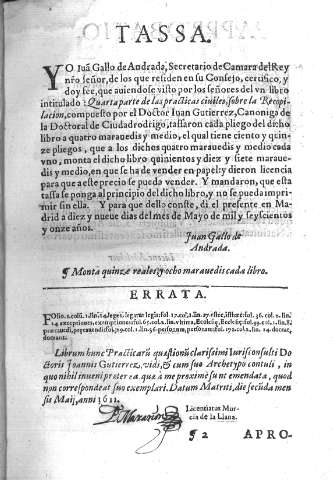 TASSA.
YO Juã Gallo de Andrada, Secretario de Camara del Rey
nr̃o señor, de los que residen en su Consejo, certifico, y
doy fee, que auiendose visto por los señores del vn libro
intitulado: Quarta parte de las practicas ciuiles, sobre la Recopi-
lacion, compuesto por el Doctor Iuan Gutierrez, Canoniga de
la Doctoral de Ciudadrodrigo, tassaron cada pliego del dicho
libro a quatro marauedis y medio, el qual tiene ciento y quin-
ze pliegos, que a los dichos quatro marauedis y medio cada
vno, monta el dicho libro quinientos y diez y siete maraue-
dis y medio, en que se ha de vender en papel: y dieron licencia
para que a este precio se pueda vender. Y mandaron, que esta
tassa se ponga al principio del dicho libro, y no se pueda impri-
mir sin ella. Y para que dello conste, di el presente en Ma-
drid a diez y nueue dias del mes de Mayo de mil y seyscientos
y onze años.
Juan Gallo de
Andrada.
¶ Monta quinze reales, y ocho marauedis cada libro.
ERRATA.
Librum hunc Practicarũ quæstionũ clarissimi Iurisconsulti Do-
ctoris Ioannis Gutierrez, vidi, & cum suo Archetypo contuli, in
quo nihil inueni præter ea, quæ à me proximè sunt emendata, quod
non correspondeat suo exemplari. Datum Matriti, die secũda men-
sis Maij, anni 1611.
Licenciatus Mur-
cia de la Llana.
¶ 2 APRO-